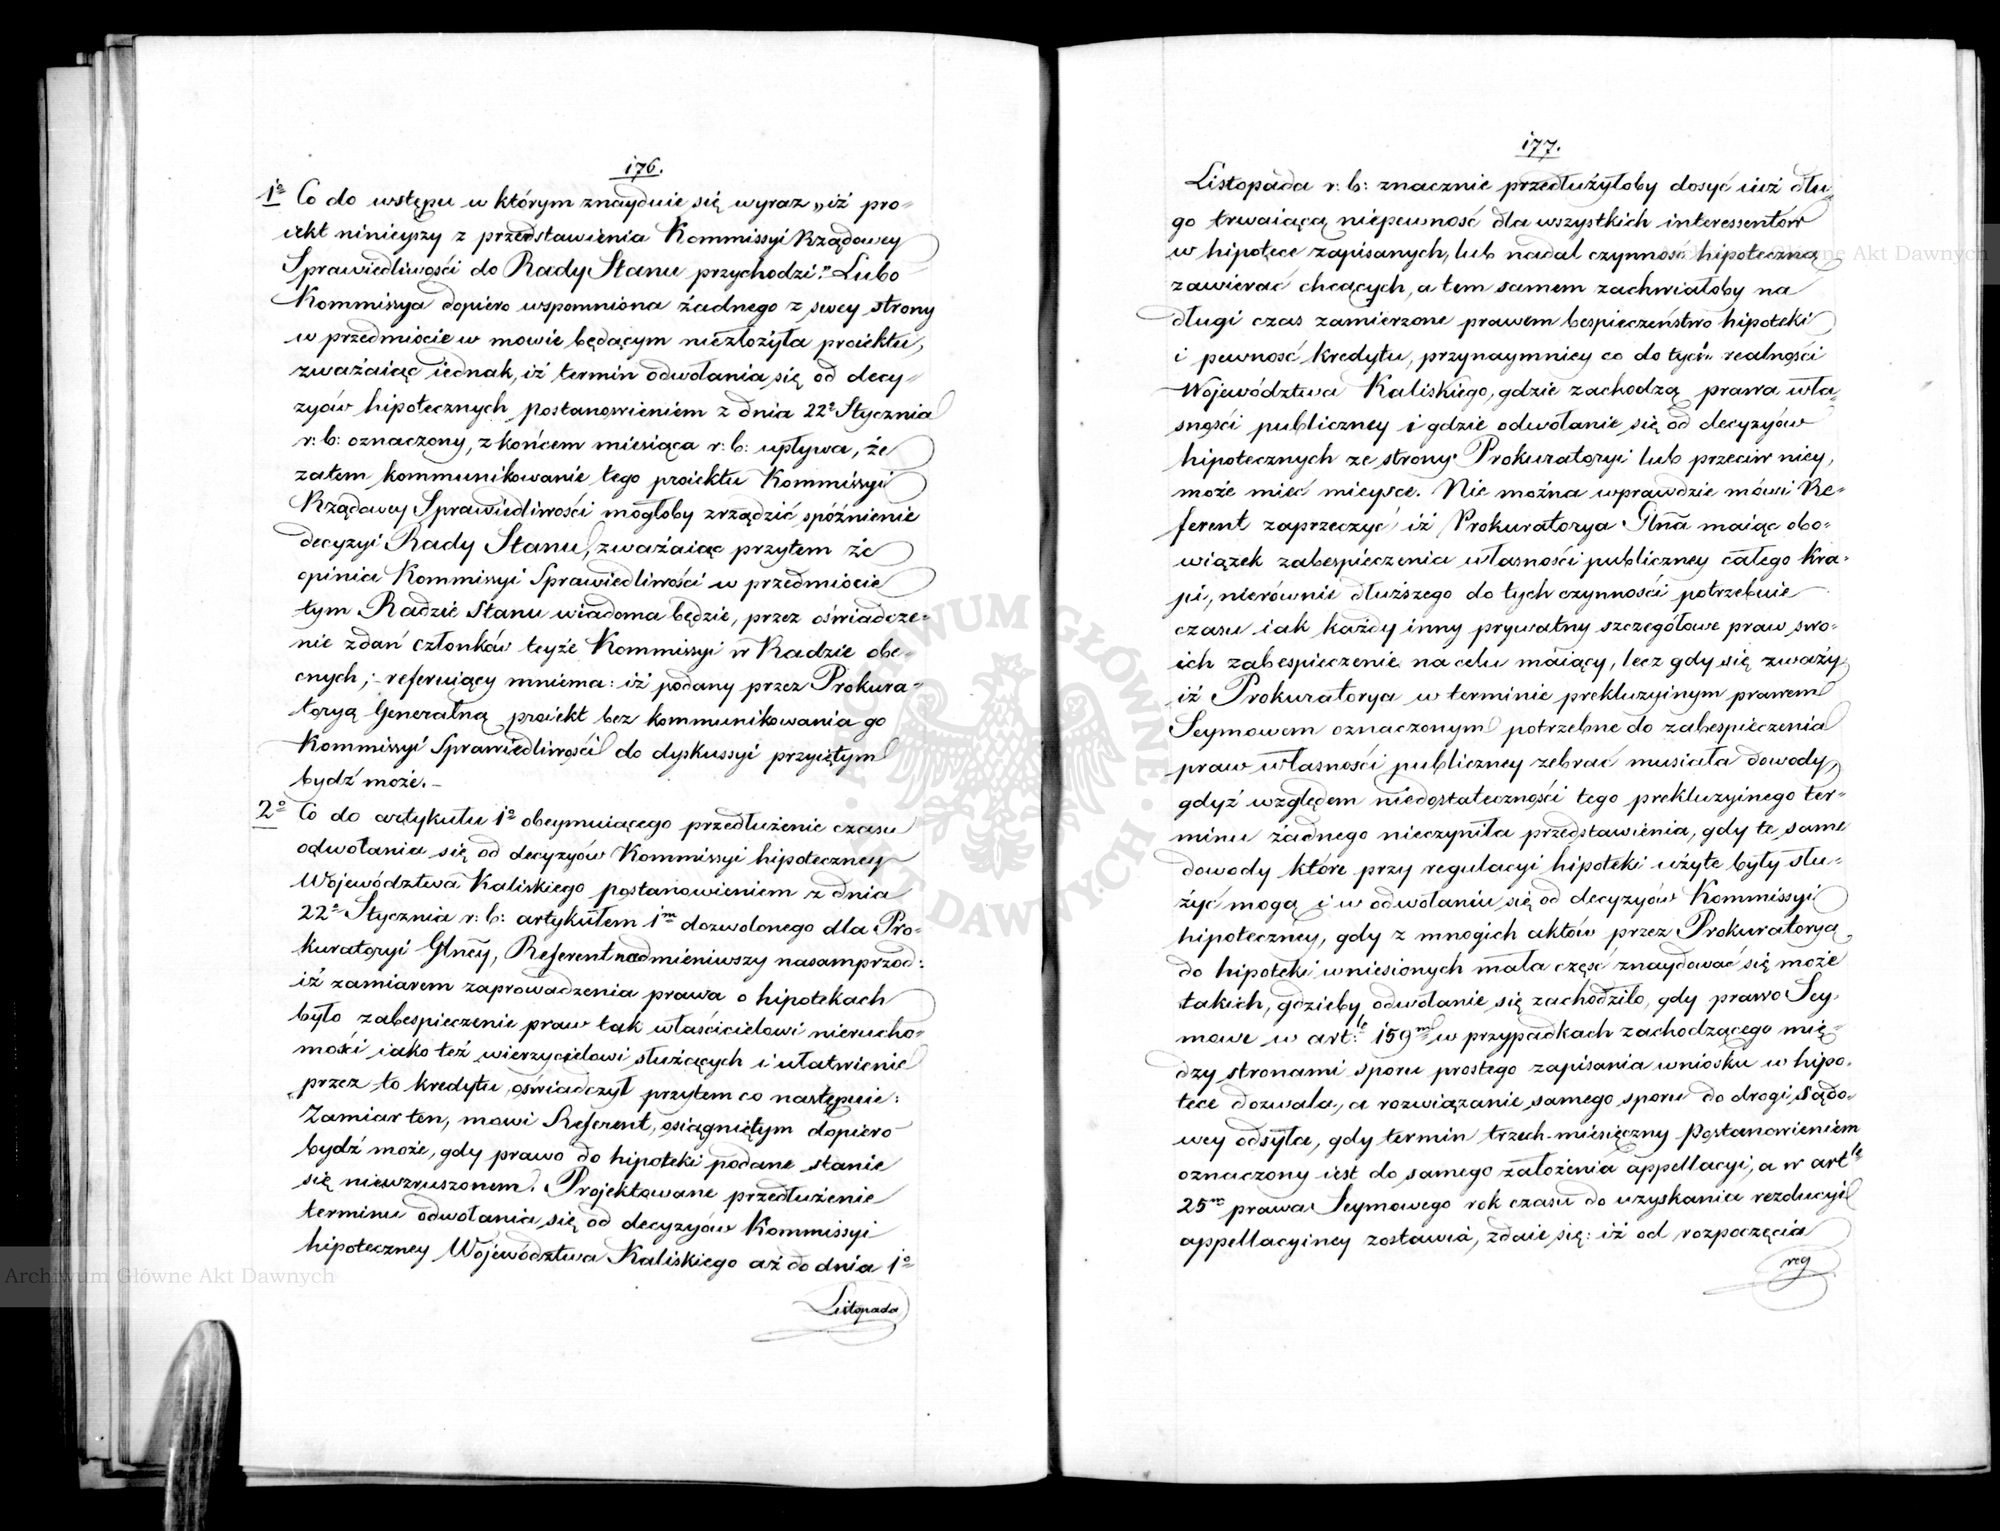 176.
1º Co do wstępu w którym znayduie się wyraz „iż pro-
iekt ninieyszy z przedstawienia Kommissyi Rządowey
Sprawiedliwości do Rady Stanu przychodzi." Lubo
Kommissya dopiero wspomniona żadnego z swey strony
w przedmiocie w mowie będącym niezłożyła proiektu,
zważaiąc iednak, iż termin odwołania się od decy-
zyów hipotecznych postanowieniem z dnia 22º Stycznia
r: b: oznaczony, z końcem miesiąca r: b: upływa, że
zatem kommunikowanie tego proiektu Kommissyi
Rządowey Sprawiedliwości mogłoby zrządzić spóźnienie
decyzyi Rady Stanu, zważaiąc przytem że
opinia Kommissyi Sprawiedliwości w przedmiocie
tym Radzie Stanu wiadoma będzie, przez oświadcze-
nie zdań członków teyże Kommissyi w Radzie obe-
cnych; - referuiący mniema: iż podany przez Prokura-
toryą Generalną proiekt bez kommunikowania go
Kommissyi Sprawiedliwości do dyskussyi przyiętym
bydź może. -
2º Co do artykułu 1º obeymuiącego przedłużenie czasu
odwołania się od decyzyów Kommissyi hipoteczney
Województwa Kaliskiego postanowieniem z dnia
22º Stycznia r: b: artykułem 1m dozwolonego dla Pro-
kuratoryi Glney, Referent nadmieniwszy nasamprzod:
iż zamiarem zaprowadzenia prawa o hipotekach
było zabespieczenie praw tak właścicielowi nierucho-
mości iako też wierzycielowi służących i ułatwienie
przez to kredytu, oświadczył przytem co następuie:
Zamiar ten, mowi Referent, osiągniętym dopiero
bydź może, gdy prawo do hipoteki podane stanie
się niewzruszonem. Projektowane przedłużenie
terminu odwołania się od decyzyów Kommissyi
hipoteczney Województwa Kaliskiego aż do dnia 1º
Listopada
177.
Listopada r: b: znacznie przedłużyłoby dosyć iuż dłu-
go trwaiącą niepewność dla wszystkich interessentów
w hipotece zapisanych, lub nadal czynność hipoteczną
zawierać chcących, a tem samem zachwiałoby na
długi czas zamierzone prawem bespieczeństwo hipoteki
i pewność kredytu, przynaymniey co do tych realności
Województwa Kaliskiego, gdzie zachodzą prawa wła-
sności publiczney i gdzie odwołanie się od decyzyów
hipotecznych ze strony Prokuratoryi lub przeciw niey,
może mieć mieysce. Nie można wprawdzie mówi Re-
ferent zaprzeczyć iż Prokuratorya Glna maiąc obo-
wiązek zabespieczenia własności publiczney całego kra-
ju, nierównie dłuższego do tych czynności potrzebuie
czasu iak każdy inny prywatny szczegółowe praw swo-
ich zabespieczenie na celu maiący, lecz gdy się zważy
iż Prokuratorya w terminie prekluzyinym prawem
Seymowem oznaczonym potrzebne do zabespieczenia
praw własności publiczney zebrać musiała dowody,
gdyż względem niedostateczności tego prekluzyinego ter-
minu żadnego nieczyniła przedstawienia, gdy te same
dowody które przy regulacyi hipoteki użyte były słu-
żyć mogą i w odwołaniu się od decyzyów Kommissyi
hipoteczney, gdy z mnogich aktów przez Prokuratoryą
do hipoteki wniesionych mała część znaydować się może
takich, gdzieby odwołanie się zachodziło, gdy prawo Sey-
mowe w art:le 159m w przypadkach zachodzącego mię-
dzy stronami sporu prostego zapisania wniosku w hipo-
tece dozwala, a rozwiązanie samego sporu do drogi sądo-
wey odsyła, gdy termin trzech-miesięczny Postanowieniem
oznaczony iest do samego założenia appellacyi, a w artle
25m prawa Seymowego rok czasu do uzyskania rezolucyi
appellacyiney zostawia, zdaie się: iż od rozpoczęcia
reg
Archiwum Główne Akt Dawnych
Archiwum Główne Akt Dawnych
ARCHIWUM GŁÓWNE AKT DAWNYCH